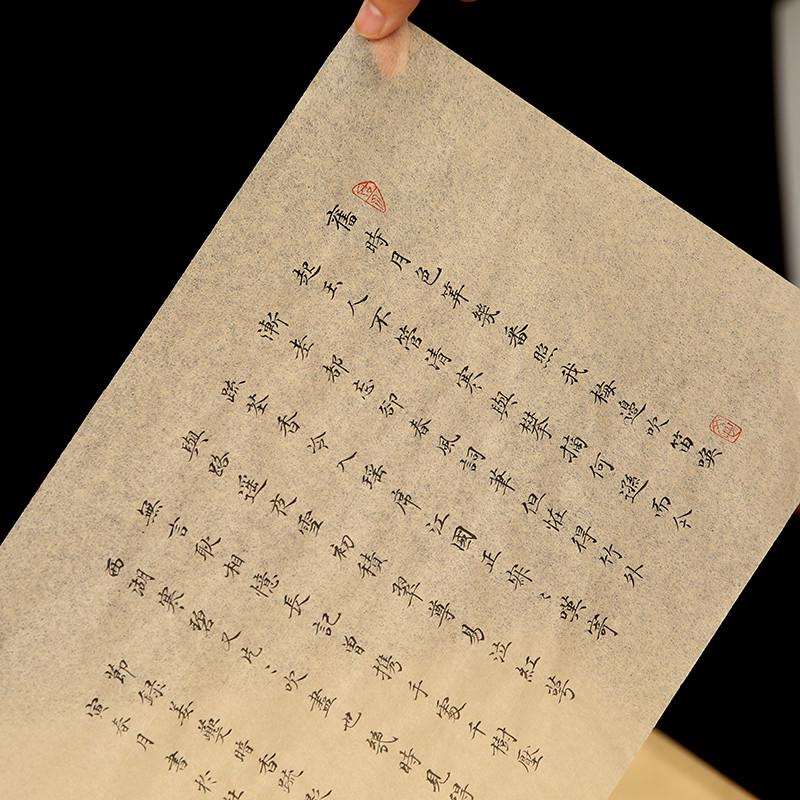 舊時月色算幾番照我梅邊吹笛喚
起玉人不管清寒與攀摘何遜而今
漸老都忘卻春風詞筆但恠得竹外
疏花香冷入瑤席江國正寂〻嘆寄
與路遙夜雪初積翠尊易泣紅萼
無言耿相憶長記曾携手處千樹壓
西湖寒碧又片〻吹盡也幾時見得
節錄姜夔暗香疏
寅春月書於